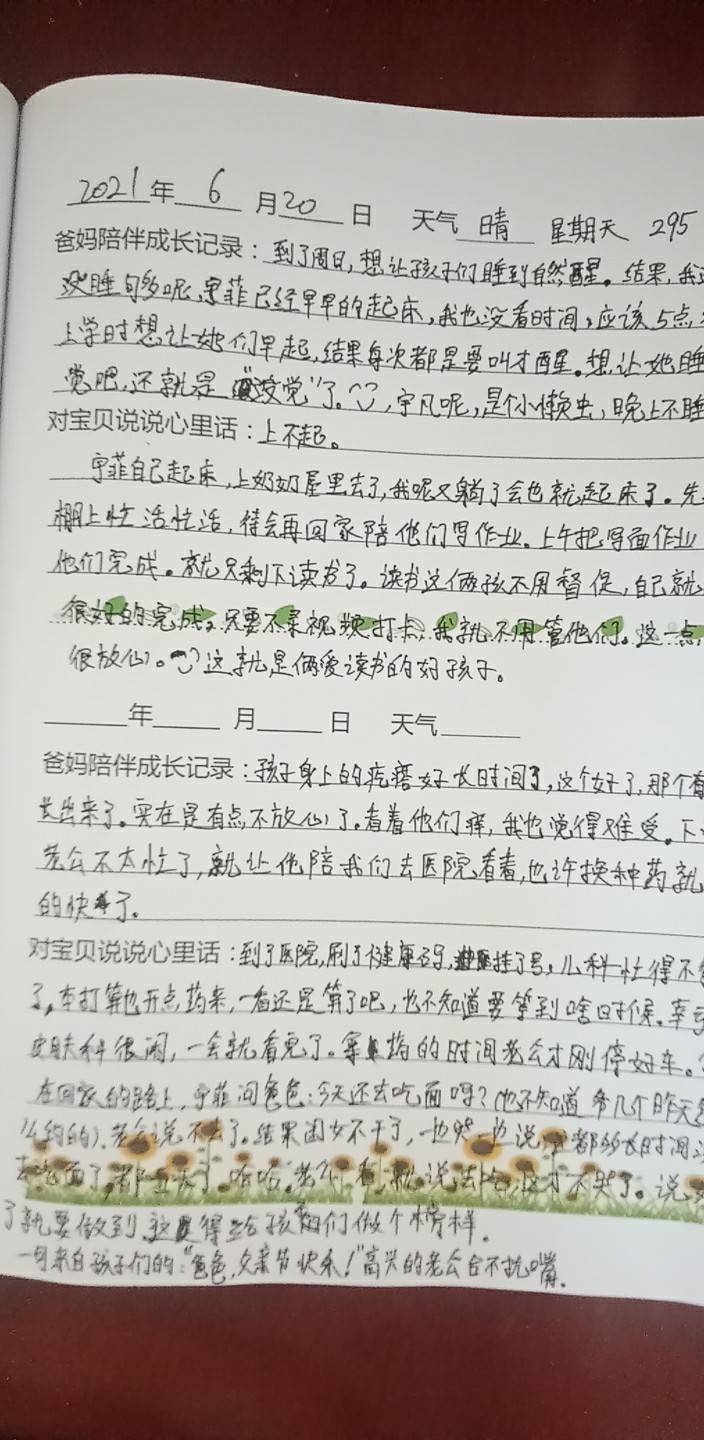 2021年 6 月20 日 天气 晴 星期天 295
爸妈陪伴成长记录：到了周日,想让孩子们睡到自然醒。结果,我还
没睡够呢,宇菲已经早早的起床,我也没看时间,应该5点
上学时想让她们早起,结果每次都是要叫才醒。想让她睡
觉吧,还就是“没觉”了。,宇凡呢,是个小懒虫,晚上不睡
对宝贝说说心里话：上不起。
宇菲自己起床,上奶奶屋里去了,我呢又躺了会也就起床了。先
棚上忙活忙活,待会再回家陪他们写作业。上午把写面作业
他们完成。就只剩下读书了。读书这俩孩不用督促,自己就
很好的完成。只要不录视频打卡,我就不用管他们。这一点
很放心。这就是俩爱读书的好孩子。
年 月 日 天气
爸妈陪伴成长记录：孩子身上的疙瘩好长时间了,这个好了,那个
长出来了。实在是有点不放心了。看着他们痒,我也觉得难受。下
老公不太忙了,就让他陪我们去医院看看,也许换种药就
的快了。
对宝贝说说心里话：到了医院,刷了健康码,挂了号,儿科忙得不
了,本打算也开点药来,一看还是算了吧,也不知道要等到啥时候。幸亏
皮肤科很闲,一会就看完了。拿药的时间老公才刚停好车。
在回家的路上,宇菲问爸爸:今天还去吃面吗?(也不知道爷几个昨天
么约的)。老公说不去了。结果闺女不干了,一边哭一边说:都多长时间
去吃面了,哈哈。老公一看,就说去吃,这才不哭了。说
了就要做到,这得给孩子们做个榜样。
一句来自孩子们的:“爸爸,父亲节快乐!”高兴的老公合不拢嘴。